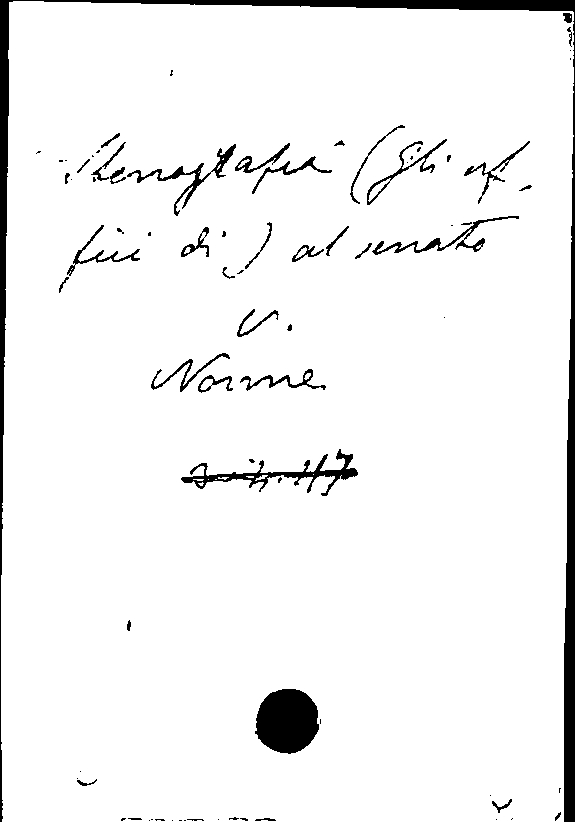 Stenografia (Gli uf-
fici di) al senato
V.
Norme